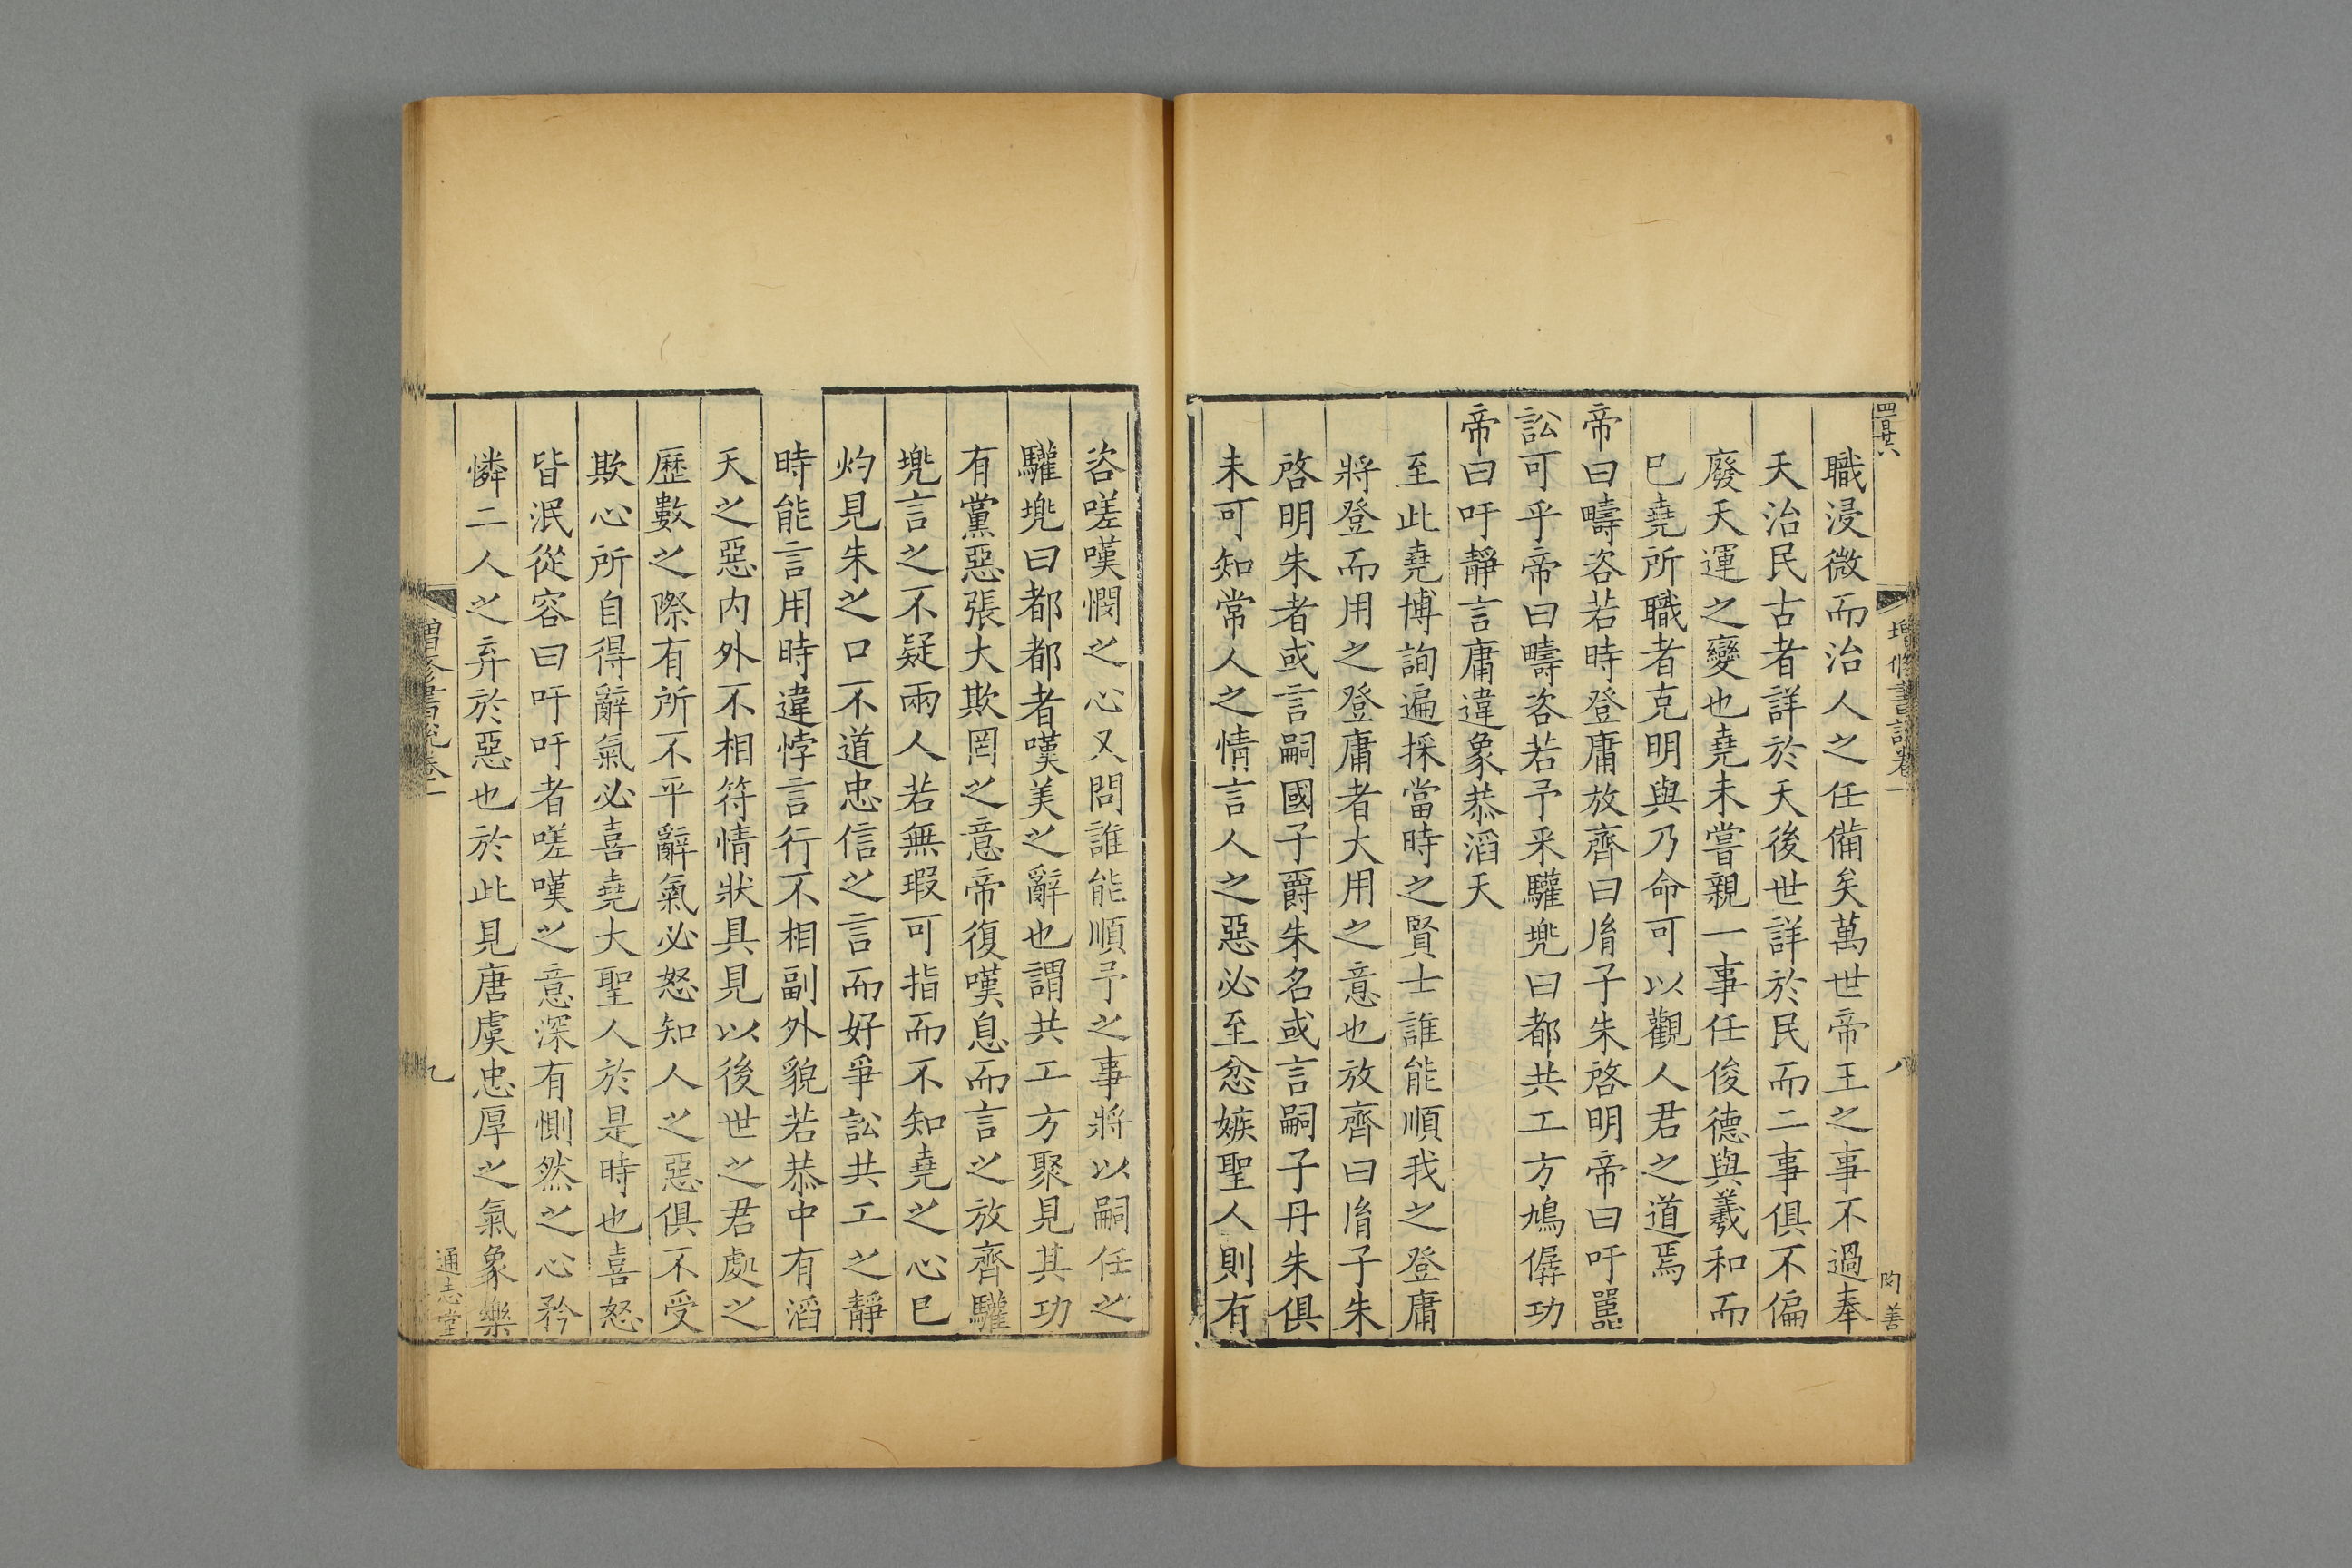 四百廿六
增修書說卷一
八
陶善
職浸微而治人之任備矣萬世帝王之事不過奉
天治民古者詳於天後世詳於民而二事俱不偏
廢天運之變也堯未嘗親一事任俊德與羲和而
已堯所職者克明與乃命可以觀人君之道焉
帝曰疇咨若時登庸放齊曰胤子朱啓明帝曰吁嚚
訟可乎帝曰疇咨若予采驩兜曰都共工方鳩僝功
帝曰吁靜言庸違象恭滔天
至此堯博詢遍採當時之賢士誰能順我之登庸
將登而用之登庸者大用之意也放齊曰胤子朱
啓明朱者或言嗣國子爵朱名或言嗣子丹朱俱
未可知常人之情言人之惡必至忿嫉聖人則有
咨嗟嘆憫之心又問誰能順予之事將以嗣任之
驩兜曰都都者嘆美之辭也謂共工方聚見其功
有黨惡張大欺罔之意帝復嘆息而言之放齊驩
兜言之不疑兩人若無瑕可指而不知堯之心已
灼見朱之口不道忠信之言而好爭訟共工之靜
時能言用時違悖言行不相副外貌若恭中有滔
天之惡內外不相符情狀具見以後世之君處之
歷數之際有所不平辭氣必怒知人之惡俱不受
欺心所自得辭氣必喜堯大聖人於是時也喜怒
皆泯從容曰吁吁者嗟嘆之意深有惻然之心矜
憐二人之弃於惡也於此見唐虞忠厚之氣象樂
增修書說卷一
九
通志堂